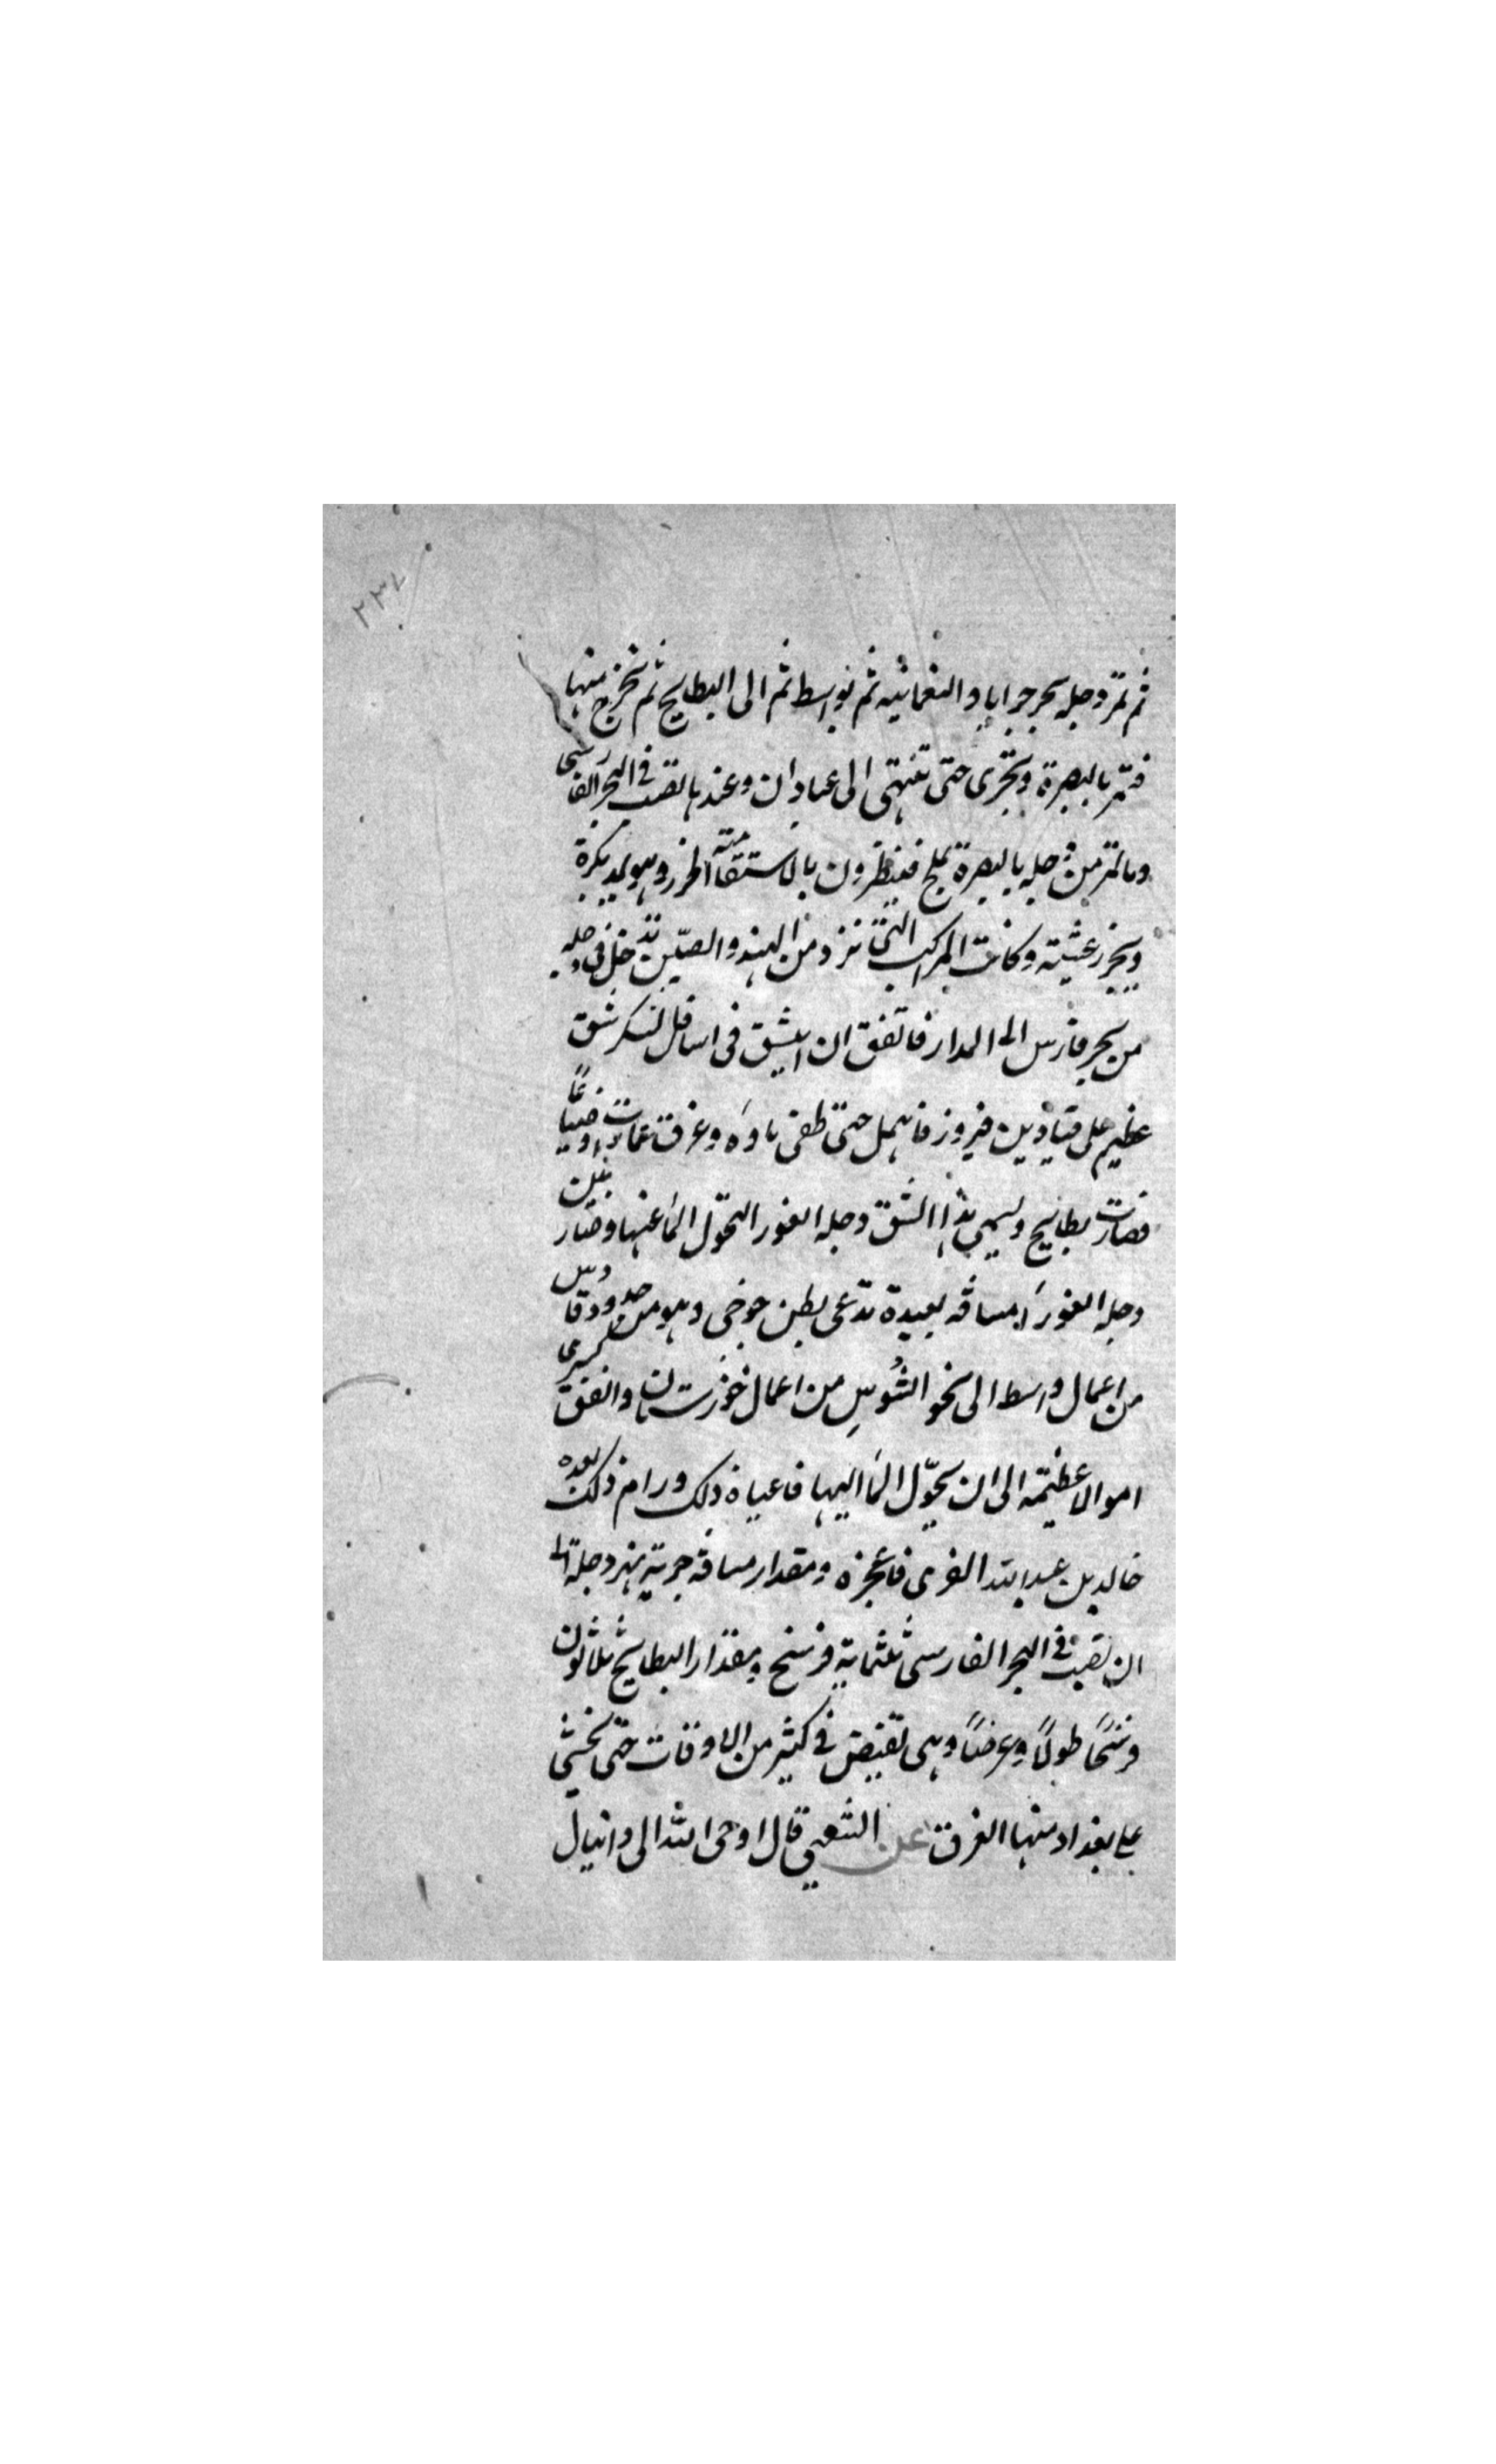 ٢٣٧
ثم تمر دجله بجرجرايا و النعمانيه ثم بواسط ثم الى البطايح ثم تخرج منها
فتمر بالبصرة وتجرى حتى تنتهى الى عبادان وعندها تصب فى البحر الفارسى
وماء دجله بالبصرة يملح فينظرون بالاستقاء منه الجزر وهو يمد بكرة
ويجزر عشية وكانت المراكب التى ترد من الهند والصين تدخل فى دجله
من بحر فارس الى المدار فاتفق ان انبثق فى اسافل كسكر شق
عظيم على قباذ بن فيروز فاهمل حتى طغى ماوه وغرق عمارات وضياعًا
فصارت بطايح ويسمى هذا الشق دجله العور التحول الماء عنها وصار بين
دجله العوراء مسافه بعيدة تدعى بطن جوخى وهو من حدود قادس
من اعمال واسط الى نحو السُوسِ من اعمال خوزستان وانفق كسرى
اموالا عظيمة الى ان يحوّل الماء اليها فاعياه ذلك ورام ذلك بعده
خالد بن عبد الله القسرى فاعجزه ومقدار مسافة جرية نهر دجلة الى
ان تصب فى البحر الفارسى ثلثماية فرسخ ومقدار البطايح ثلاثون
فرسخًا طولًا وعرضًا وهى تفيض فى كثير من الاوقات حتى يخشى
على بغداد منها الغرق عن الشعبي قال اوحى الله الى دانيال